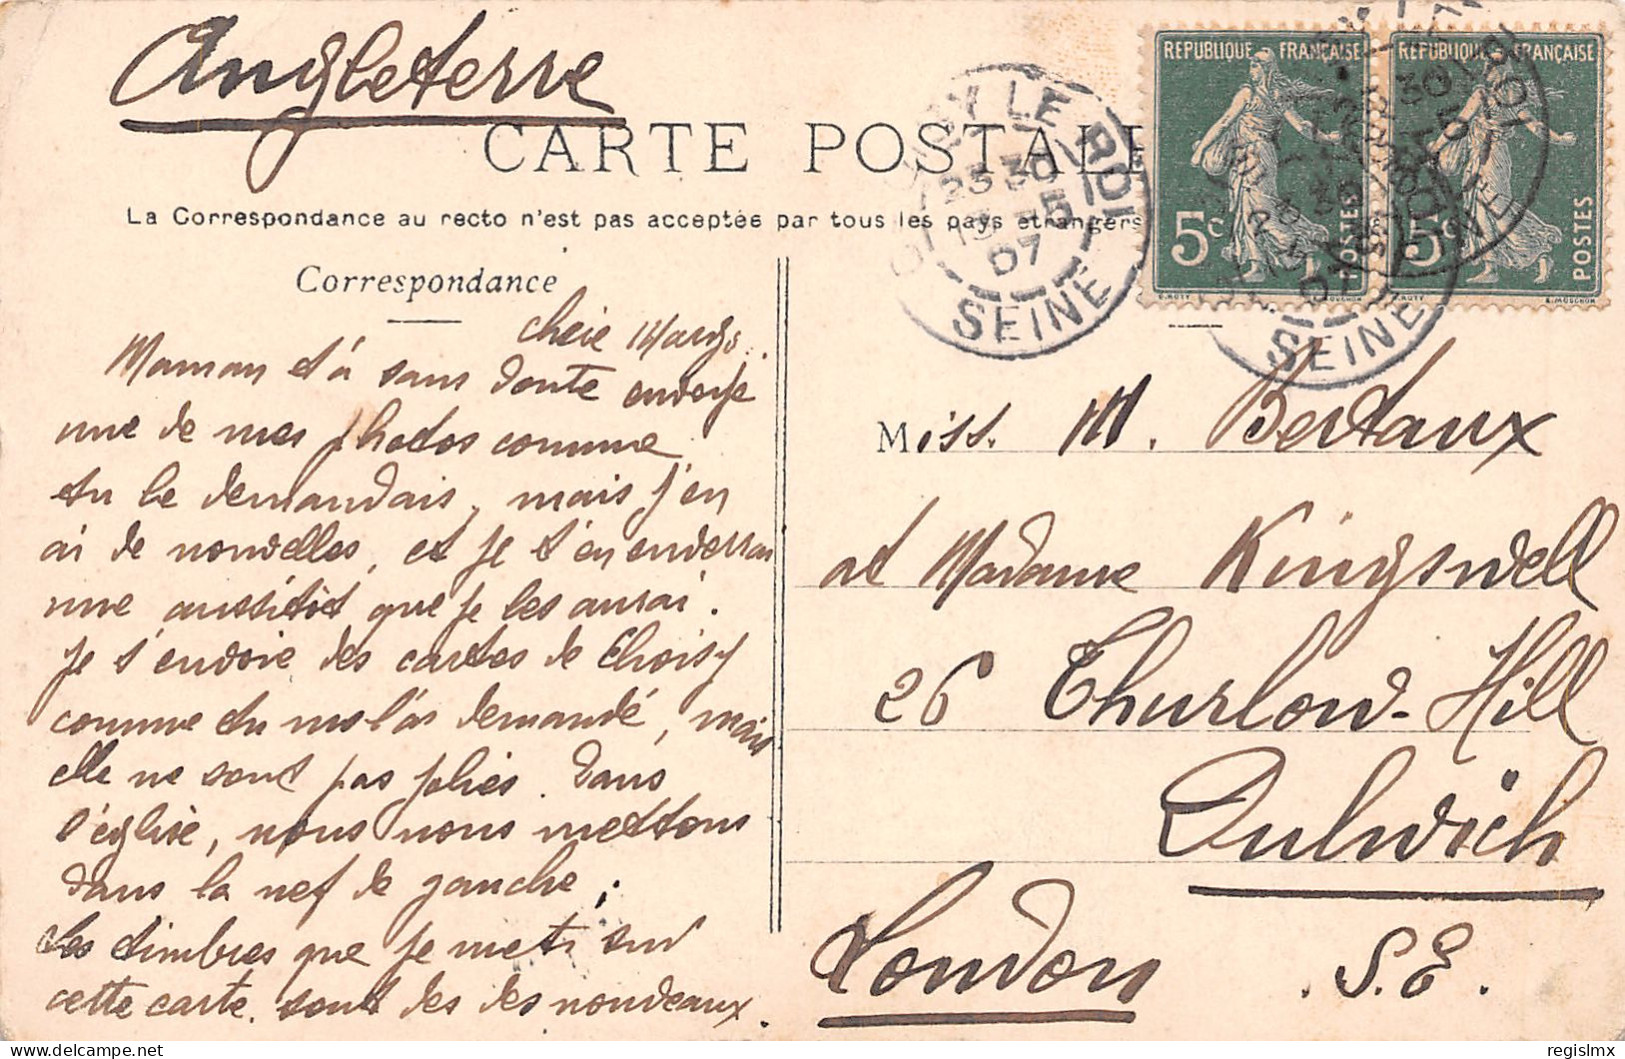 Angleterre
CARTE POSTALE
La Correspondance au recto n'est pas acceptée par tous les pays étrangers
REPUBLIQUE FRANÇAISE
5c
POSTES
REPUBLIQUE FRANÇAISE
5c
POSTES
CHOISY LE ROI
23 30
5
07
SEINE
SEINE
Correspondance
Chère
Maman t'a sans doute envoyé
une de mes photos comme
tu le demandais, mais j'en
ai de nouvelles, et je t'en enverrai
une aussitôt que je les aurai.
Je t'envoie des cartes de Choisy
comme tu me l'as demandé, mais
elle ne sont pas jolies. Dans
l'église, nous nous mettons
dans la nef de gauche.
Les timbres que je mets sur
cette carte sont des nouveaux.
Miss. M. Bertaux
at Madame Kingswell
26 Thurlow-Hill
Dulwich
London S.E.
regislmx